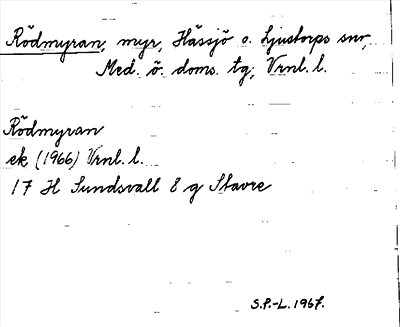 Rödmyran, myr, Hässjö o. Ljustorps snr,
Med. ö. doms. tg; Vrnl. l.
Rödmyran
ek (1966) Vrnl. l.
17 H Sundsvall 8 g Stavre
S.P.-L. 1967.